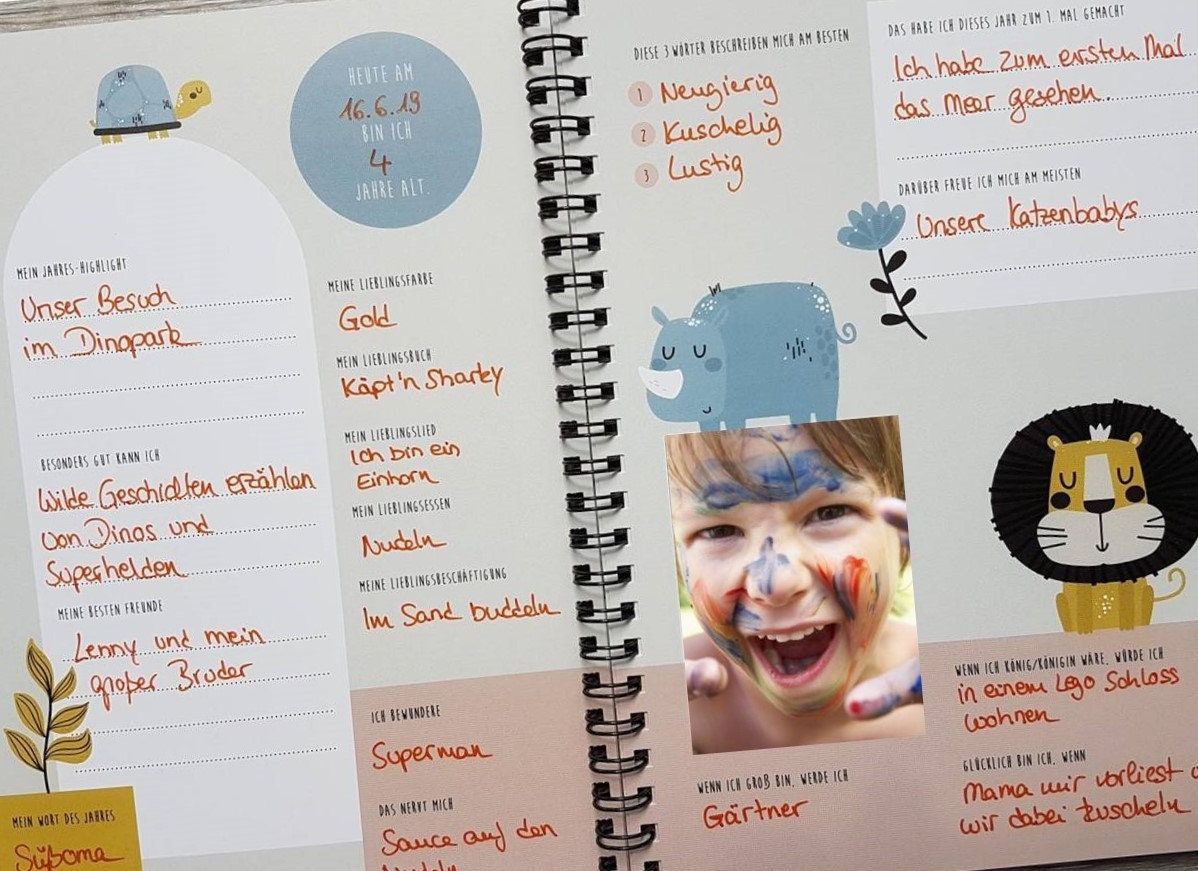 HEUTE AM
16.6.19
BIN ICH
4
JAHRE ALT.
MEIN JAHRES-HIGHLIGHT
Unser Besuch
im Dinopark
BESONDERS GUT KANN ICH
Wilde Geschichten erzählen
von Dinos und
Superhelden
MEINE BESTEN FREUNDE
Lenny und mein
großer Bruder
MEIN WORT DES JAHRES
Süßoma
MEINE LIEBLINGSFARBE
Gold
MEIN LIEBLINGSBUCH
Käpt'n Sharky
MEIN LIEBLINGSLIED
Ich bin ein
Einhorn
MEIN LIEBLINGSESSEN
Nudeln
MEINE LIEBLINGSBESCHÄFTIGUNG
Im Sand buddeln
ICH BEWUNDERE
Superman
DAS NERVT MICH
Sauce auf den
Nudeln
DIESE 3 WÖRTER BESCHREIBEN MICH AM BESTEN
1 Neugierig
2 Kuschelig
3 Lustig
DAS HABE ICH DIESES JAHR ZUM 1. MAL GEMACHT
Ich habe zum ersten Mal
das Meer gesehen.
DARÜBER FREUE ICH MICH AM MEISTEN
Unsere Katzenbabys
WENN ICH GROß BIN, WERDE ICH
Gärtner
WENN ICH KÖNIG/KÖNIGIN WÄRE, WÜRDE ICH
in einem Lego Schloss
wohnen
GLÜCKLICH BIN ICH, WENN
Mama mir vorliest
wir dabei kuscheln